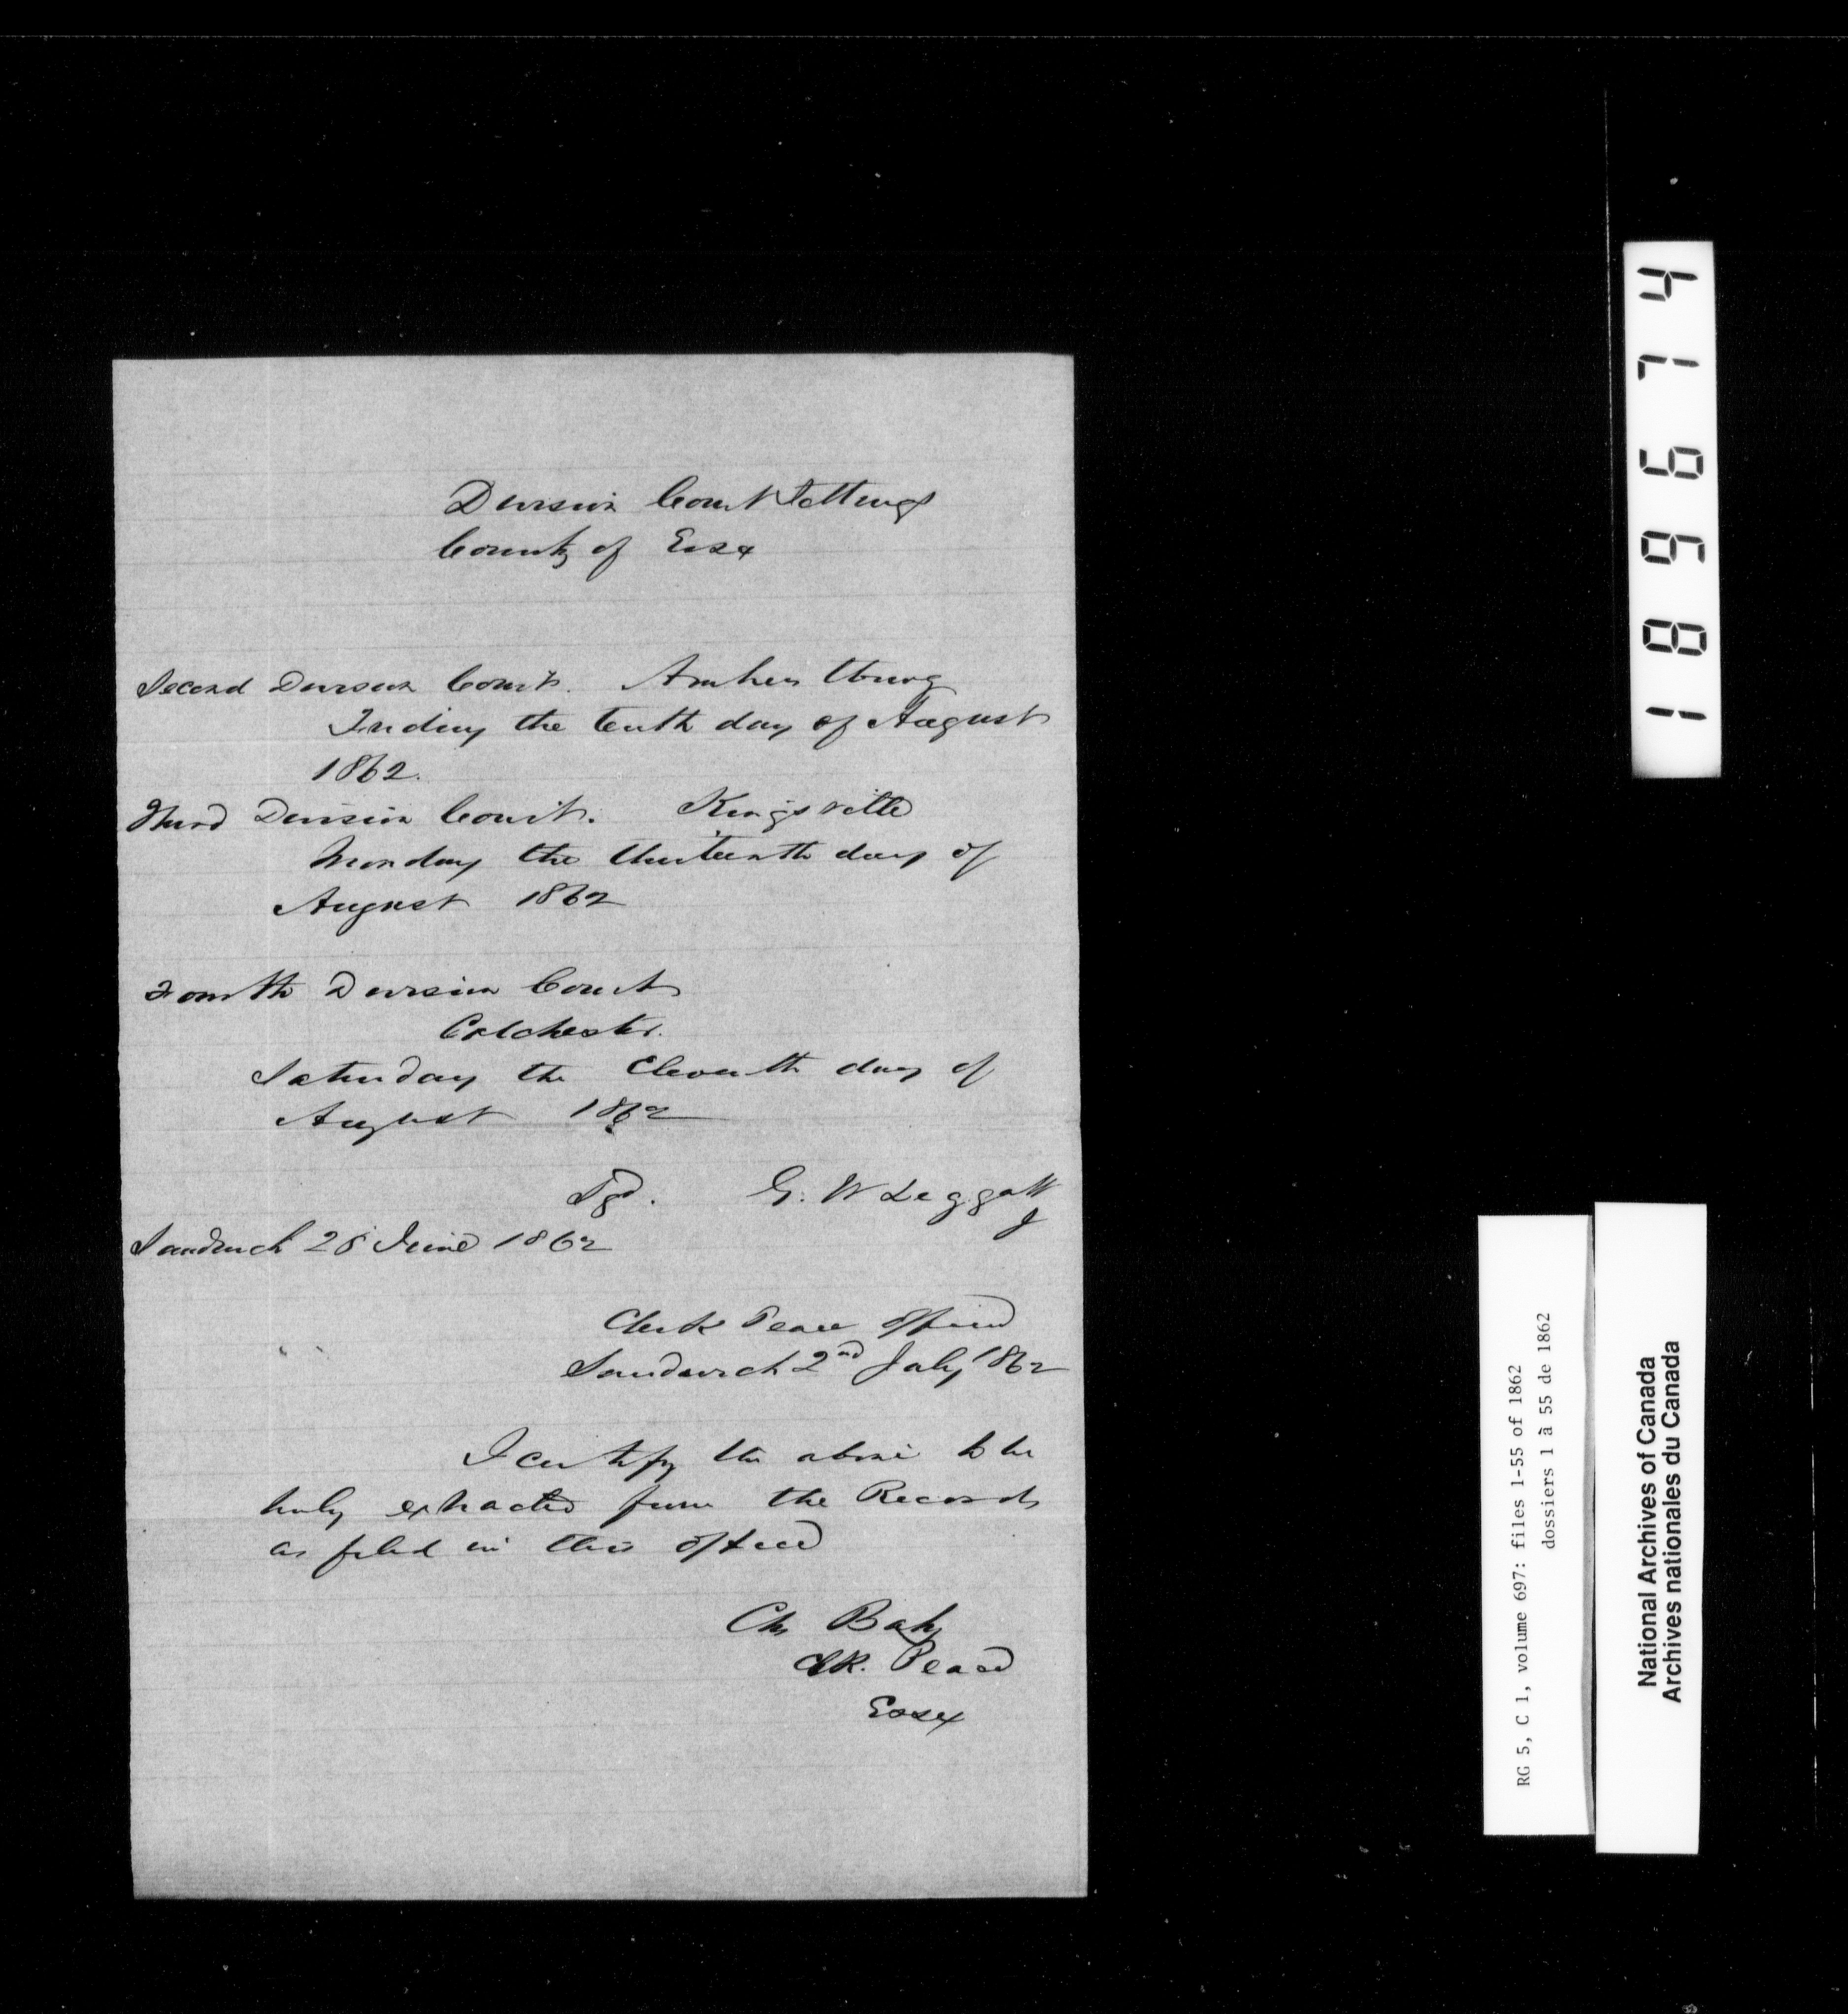 Division Court Sittings
County of Essex
Second Division Court. Amherstburg
Friday the tenth day of August
1862.
Third Division Court. Kingsville
Monday the thirteenth day of
August 1862
Fourth Division Court
Colchester.
Saturday the Eleventh day of
August 1862
Sgd. G. W Leggatt
J
Sandwich 28 June 1862
Clerk Peace Office
Sandwich 2nd July 1862
I certify the above to be
truly extracted from the Records
as filed in this office
Chs Baby
Clk. Peace
Essex
189674
RG 5, C 1, volume 697: files 1-55 of 1862
dossiers 1 à 55 de 1862
National Archives of Canada
Archives nationales du Canada